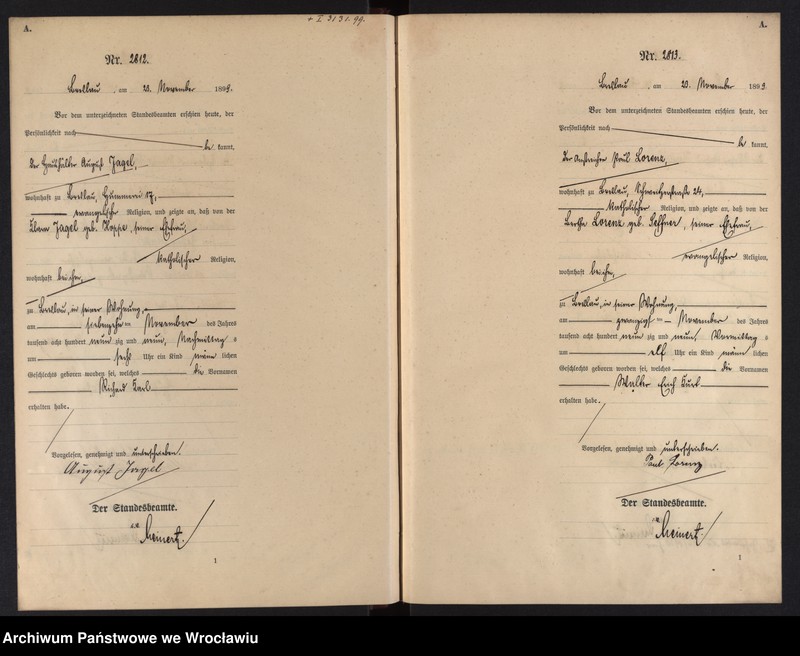 A.
+ I 3131.99.
Nr. 2812.
Breslau, am 20. November 1899.
Vor dem unterzeichneten Standesbeamten erschien heute, der
Persönlichkeit nach
be kannt,
der Haushälter August Jagel,
wohnhaft zu Breslau, Hummerei 17,
evangelischer Religion, und zeigte an, daß von der
Klara Jagel geb. Hoppe, seiner Ehefrau,
katholischer Religion,
wohnhaft bei ihm,
zu Breslau, in seiner Wohnung,
am siebenzehn ten November des Jahres
tausend acht hundert neun zig und neun, Nachmittag s
um sechs Uhr ein Kind männ lichen
Geschlechts geboren worden sei, welches die Vornamen
Richard Karl
erhalten habe.
Vorgelesen, genehmigt und unterschrieben.
August Jagel
Der Standesbeamte.
Meinert.
1
A.
Nr. 2813.
Breslau, am 20. November 1899.
Vor dem unterzeichneten Standesbeamten erschien heute, der
Persönlichkeit nach
be kannt,
der Anstreicher Paul Lorenz,
wohnhaft zu Breslau, Schweitzerstraße 24,
katholischer Religion, und zeigte an, daß von der
Bertha Lorenz geb. Seffner, seiner Ehefrau,
evangelischer Religion,
wohnhaft bei ihm,
zu Breslau, in seiner Wohnung,
am zwanzigst en November des Jahres
tausend acht hundert neun zig und neun, Vormittag s
um elf Uhr ein Kind männ lichen
Geschlechts geboren worden sei, welches die Vornamen
Walter Erich Kurt
erhalten habe.
Vorgelesen, genehmigt und unterschrieben.
Paul Lorenz
Der Standesbeamte.
Meinert.
1
Archiwum Państwowe we Wrocławiu